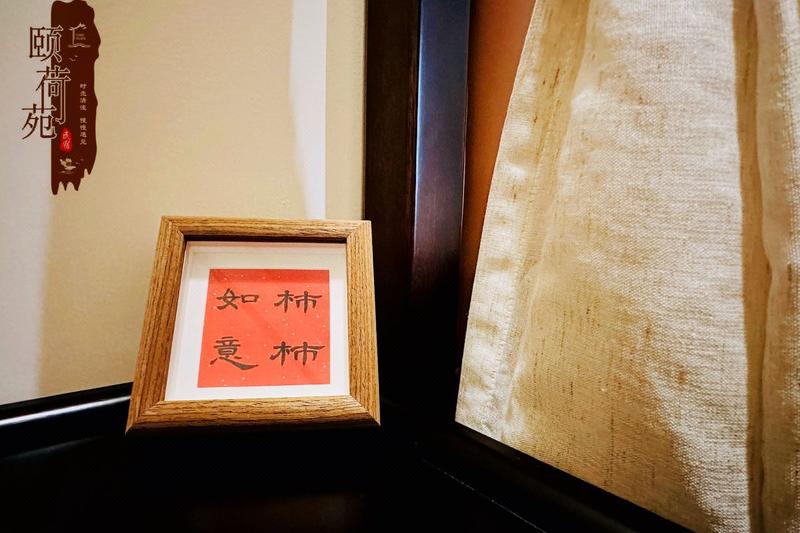 颐荷苑
时光清浅 慢慢遇见
民宿
柿柿
如意